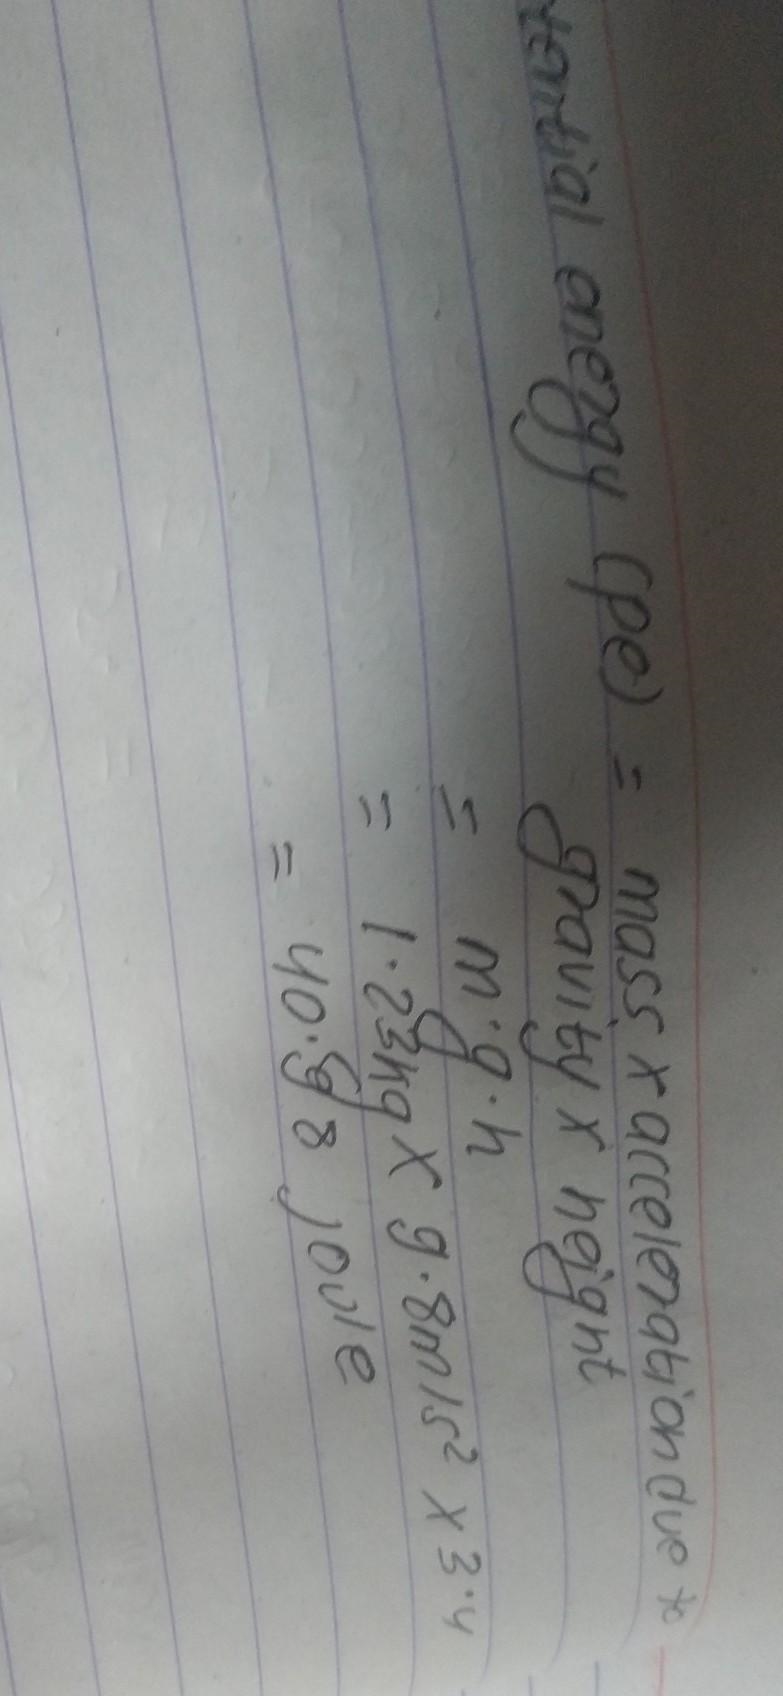 tential energy (pe) = mass x acceleration due to
gravity x height
= m.g.h
= 1.23kg x 9.8m/s² x 3.4
= 40.98 joule